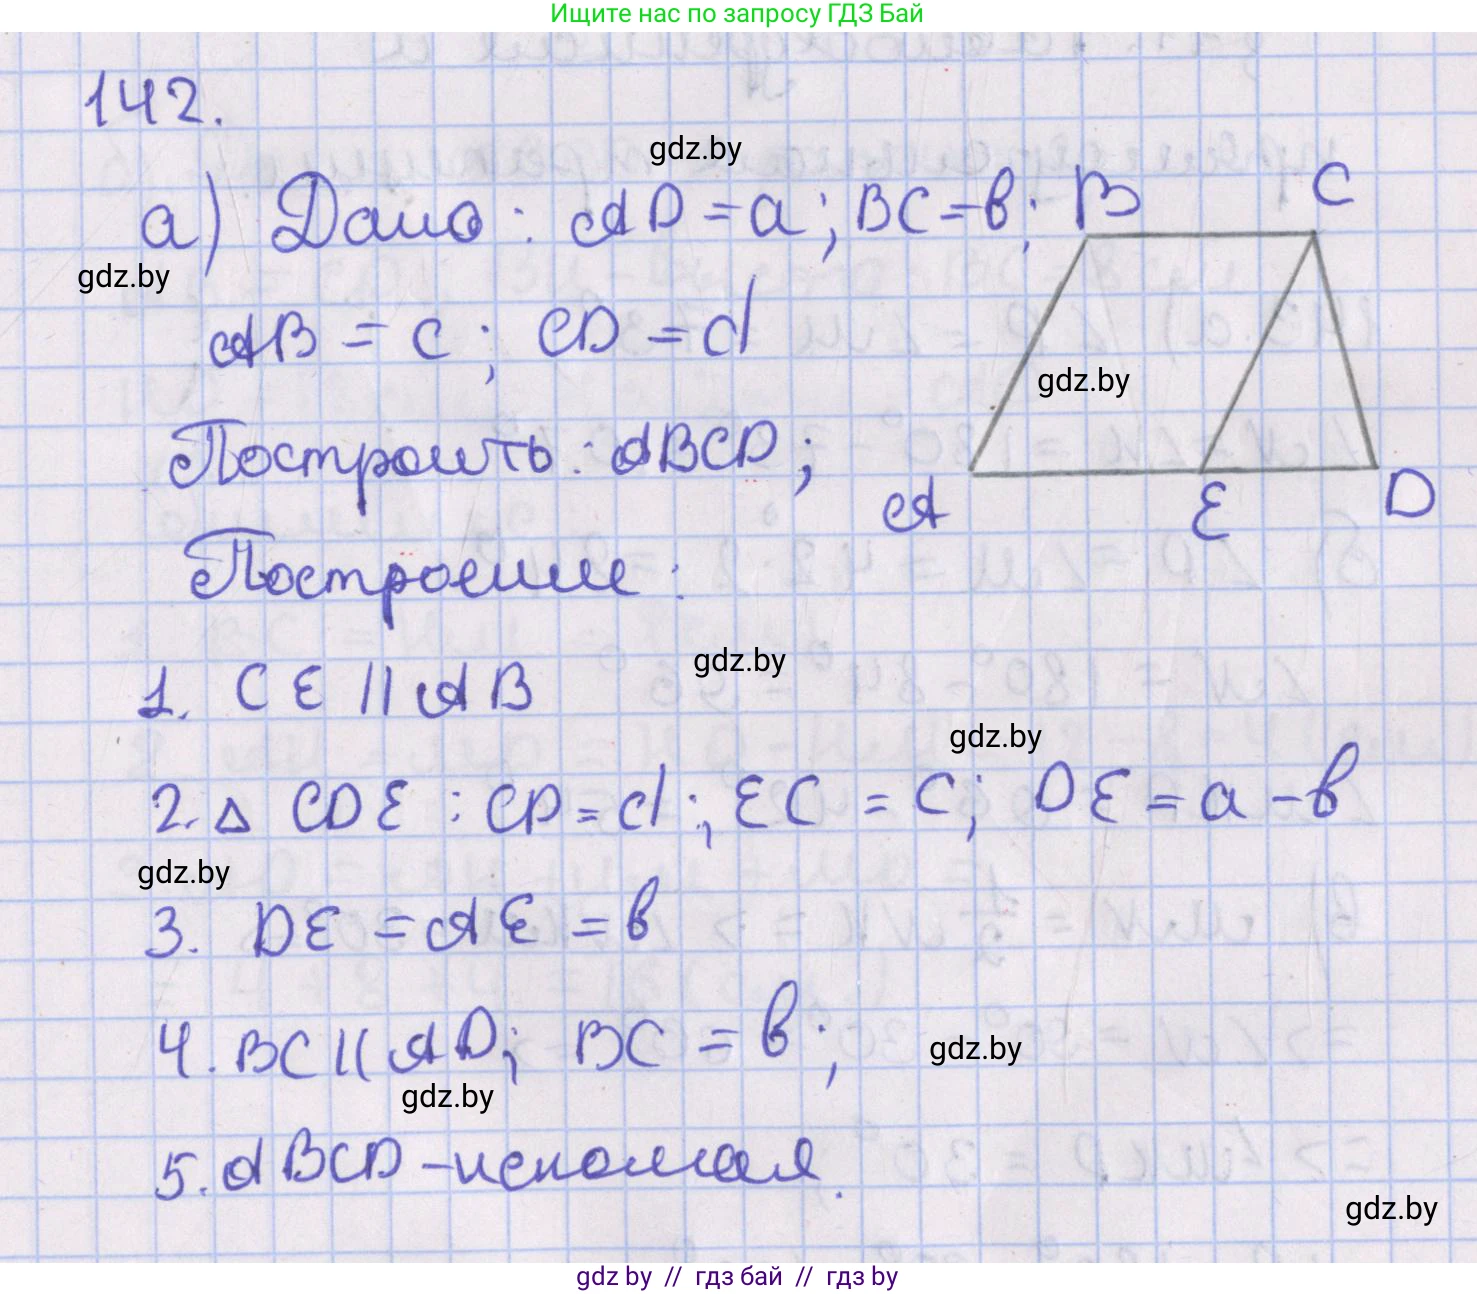 Ищите нас по запросу ГДЗ Бай
142.
gdz.by
а) Дано: AD = a; BC = b;
B C
gdz.by
AB = c; CD = d
gdz.by
Построить: ABCD;
A E D
Построение:
1. CE || AB
gdz.by
gdz.by
2. Δ CDE : CD = d; EC = c; DE = a - b
gdz.by
3. DE = AE = b
4. BC || AD; BC = b;
gdz.by
gdz.by
5. ABCD - искомая.
gdz.by
gdz by // гдз бай // гдз by